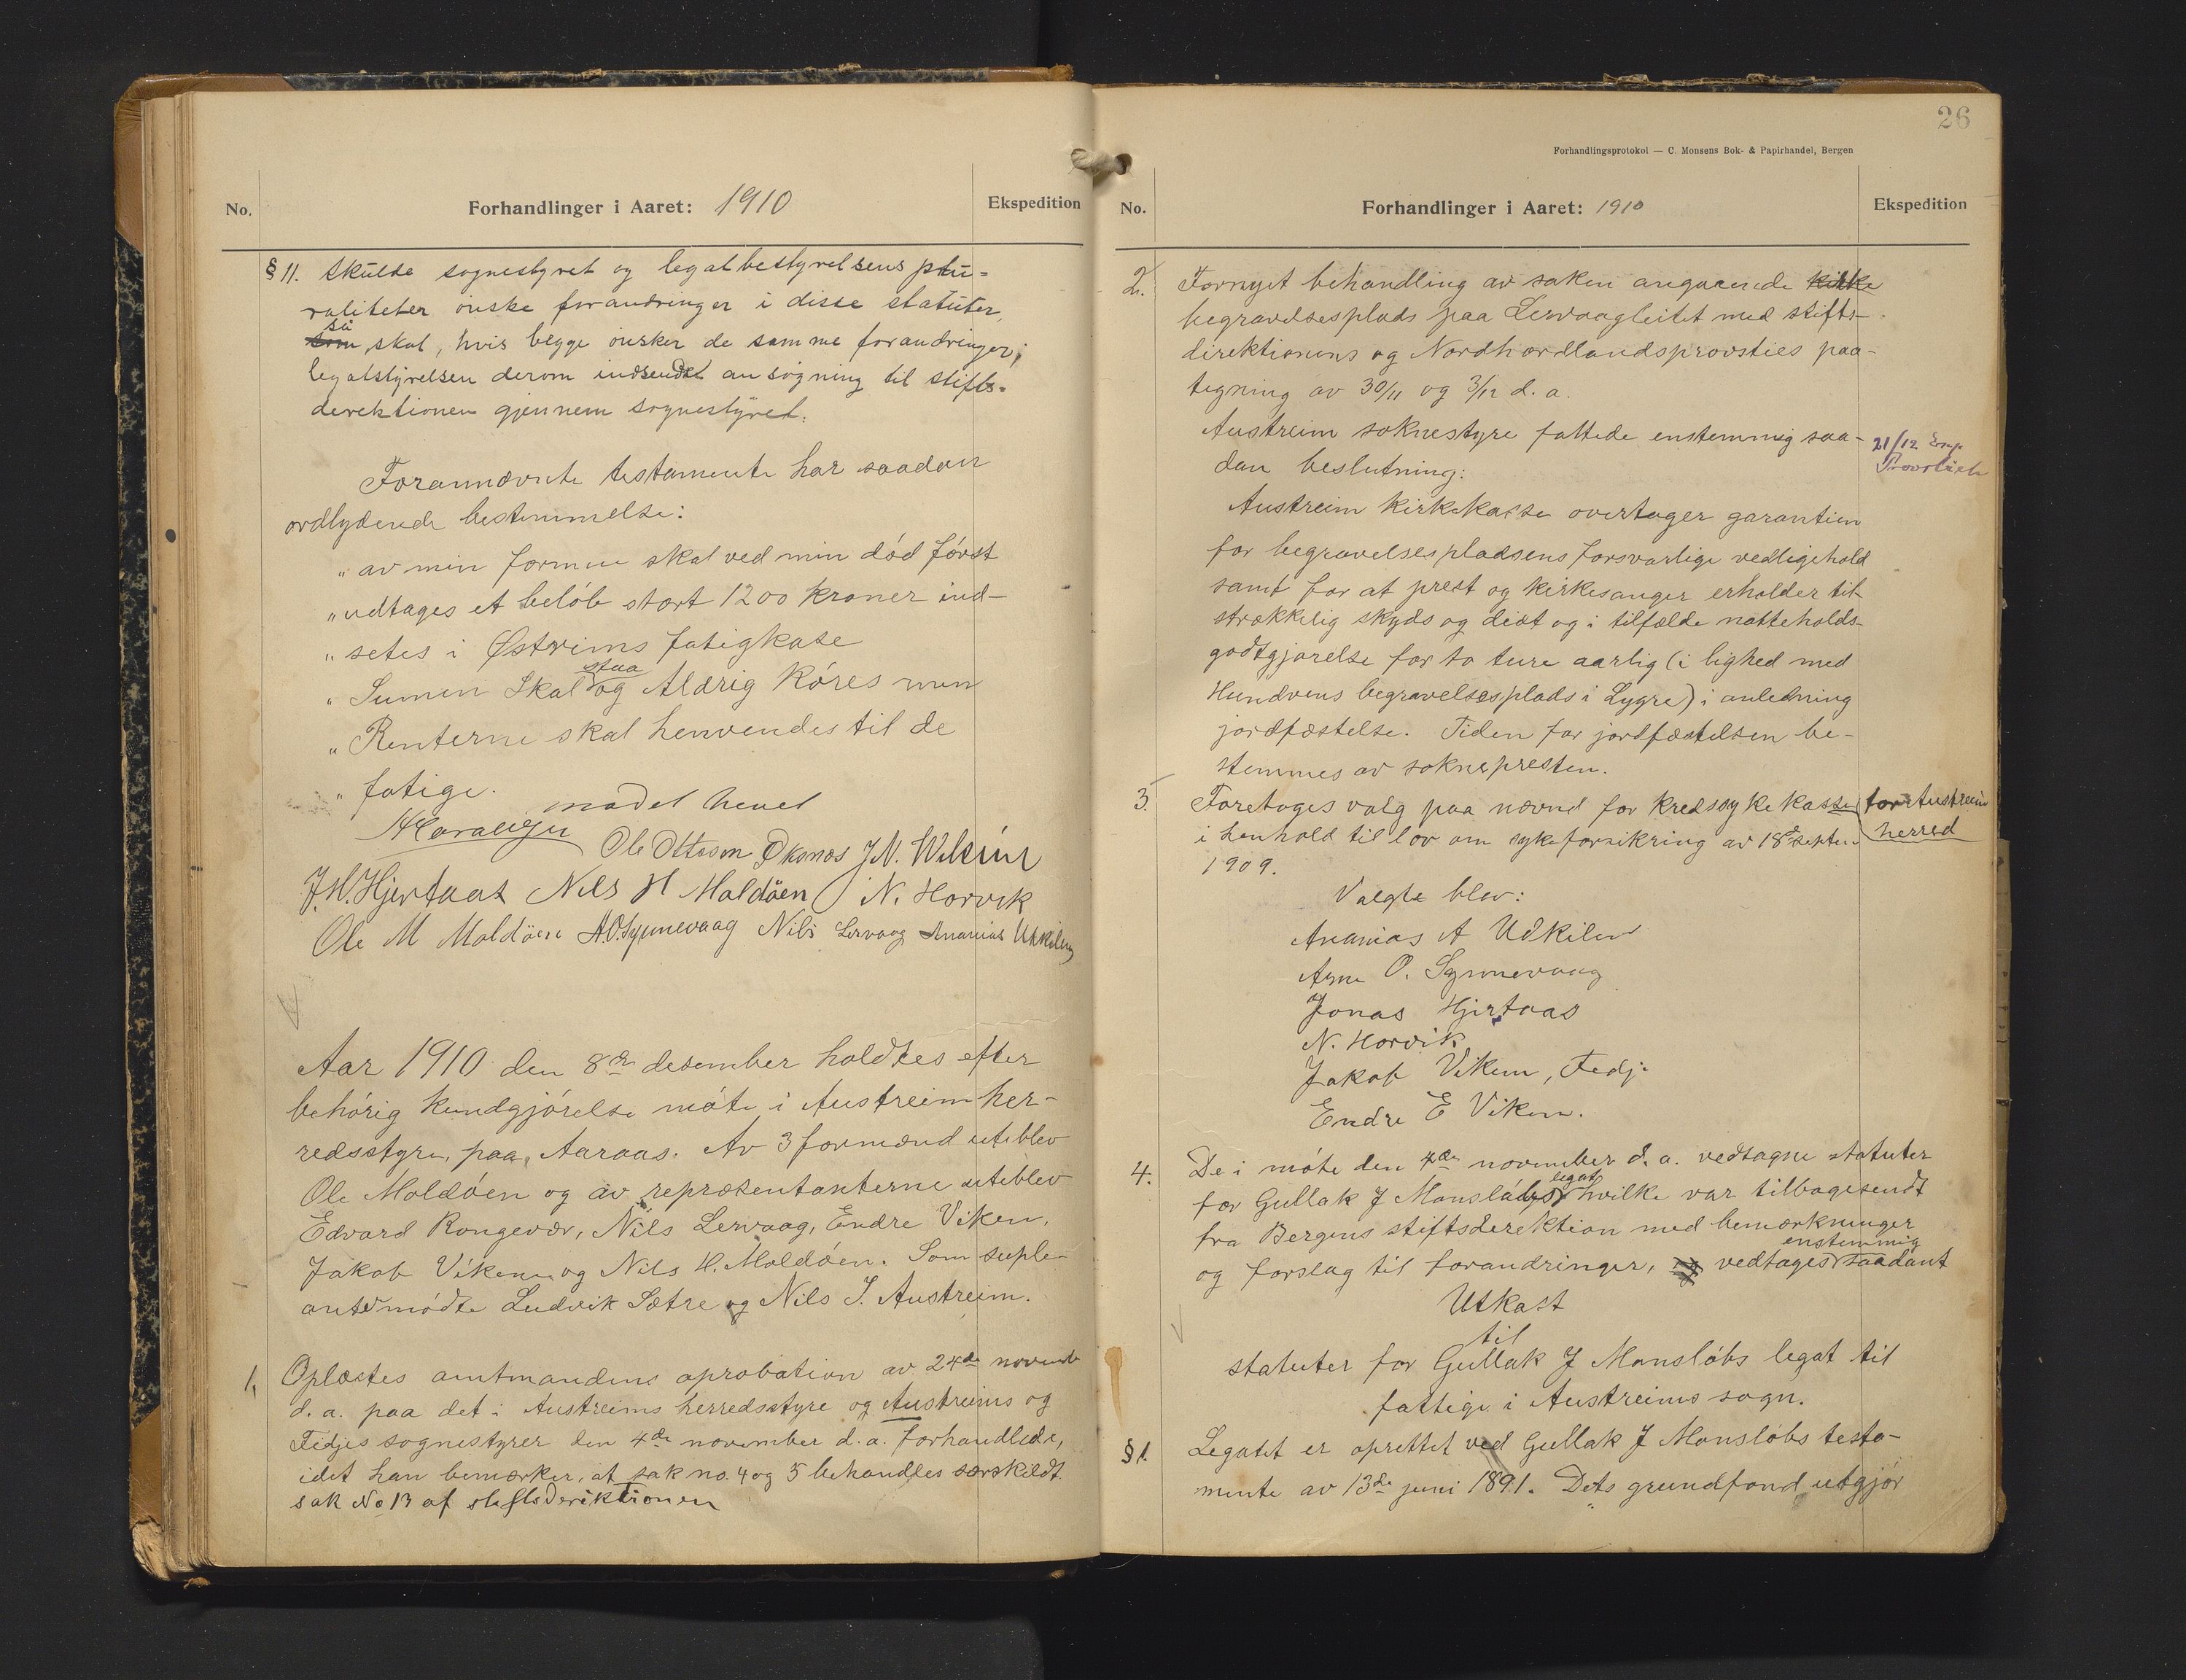 No.
Forhandlinger i Aaret: 1910
Ekspedition
§ 11. Skulde sognestyret og legatbestyrelsens plu-
raliteter önske forandringer i disse statuter,
så
som skal, hvis begge önsker de samme forandringer,
legatstyrelsen derom indsende ansögning til stifts-
derektionen gjennem sognestyret.
Forannævnte testamente har saadan
ordlydende bestemmelse:
„ av min formue skal ved min död först
„ udtages et belöb stort 1200 kroner ind-
„ setes i Østreims fatigkase
staa
„ Sumen Skal og Aldrig Röres men
„ Renterne skal henvendes til de
„ fatige.
Ole Ottosen Øksnæs J. N. Wikin
J. H. Hjertaas Nils H Moldöen N. Horvik
Ole M Moldöen A. O. Synnevaag Nils Lervaag Ananias Utkilen
Aar 1910 den 8de desember holdtes efter
behörig kundgjörelse möte i Austreim her-
redsstyre, paa Aaraas. Av 3 formænd uteblev
Ole Moldöen og av repræsentanterne uteblev
Edvard Rongevær, Nils Lervaag, Endre Viken,
Jakob Viken og Nils H. Moldöen. Som suple-
anter mödte Ludvik Sætre og Nils I. Austreim.
1. Oplæstes amtmandens aprobation av 24de novemb
d. a. paa det i Austreims herredsstyre og Austreims og
Fedjes sognestyrer den 4de november d. a. forhandlede,
idet han bemærker, at sak no. 4 og 5 behandles særskildt.
sak No 13 af stiftsderiktionen
26
Forhandlingsprotokol — C. Monsens Bok- & Papirhandel, Bergen
No.
Forhandlinger i Aaret: 1910
Ekspedition
2. Fornyet behandling av saken angaaende kirke
begravelsesplads paa Lervaagleitet med stifts-
direktionens og Nordhordlandsprovsties paa-
tegning av 30/11 og 3/12 d. a.
Austreim soknestyre fattede enstemmig saa-
dan beslutning:
21/12 Exp
Austreim kirkekasse overtager garantien
for begravelsespladsens forsvarlige vedligehold
samt for at prest og kirkesanger erholder til-
strækkelig skyds og diæt og i tilfælde natteholds-
godtgjørelse for to ture aarlig (i lighed med
Hundvens begravelsesplads i Lygre) i anledning
jordfæstelse. Tiden for jordfæstelsen be-
stemmes av soknepresten.
3. Foretoges valg paa nævnd for kredssykekassen for Austreim
herred
i henhold til lov om sykeforsikring av 18de septem
1909.
Valgte blev:
Ananias A Udkilen
Arne O. Synnevaag
Jonas Hjertaas
N. Horvik
Jakob Viken, Fedje
Endre E Viken.
4. De i möte den 4de november d. a. vedtagne statuter
legat
for Gullak J Monslöbs hvilke var tilbagesendt
fra Bergens stiftsderektion med bemærkninger
enstemmig
og forslag til forandringer, og vedtages saadant
Utkast
til
statuter for Gullak J Monslöbs legat til
fattige i Austreims sogn.
§ 1. Legatet er oprettet ved Gullak J Monslöbs testa-
mente av 13de juni 1891. Dets grundfond utgjör